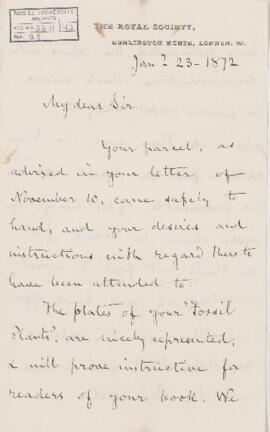 McGILL UNIVERSITY
ARCHIVES
THE ROYAL SOCIETY,
BURLINGTON HOUSE, LONDON. W.
Jany 23 - 1872
My dear Sir
Your parcel, as
advised in your letter of
November 10, came safely to
hand, and your desires and
instructions with regard thereto
have been attended to.
The plates of your "Fossil
Plants", are nicely represented,
& will prove instructive for
readers of your book. We